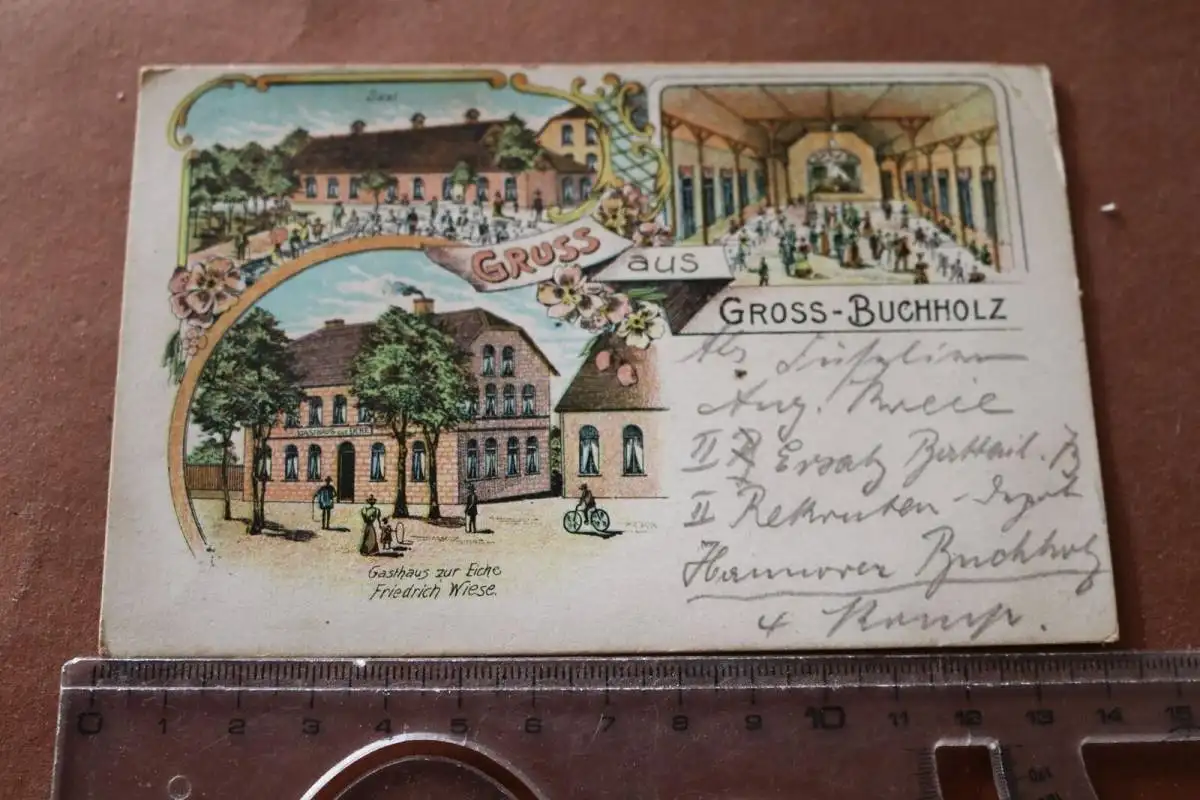 Saal
GRUSS
aus
GROSS-BUCHHOLZ
GASTHAUS ZUR EICHE
Gasthaus zur Eiche
Friedrich Wiese.
Aug.
II Ersatz Battail.
II Rekruten-Depot
Hannover Buchholz
4 Komp.
0 1 2 3 4 5 6 7 8 9 10 11 12 13 14 15